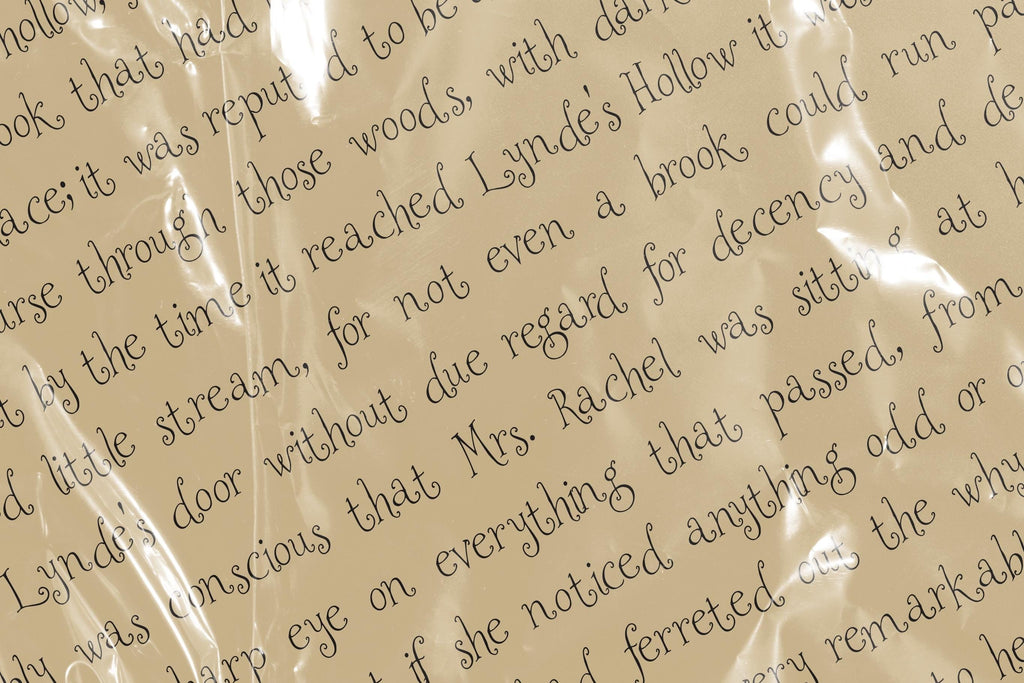 hollow,
ook that had
ace; it was reputed to be a
urse through those woods, with dark
t by the time it reached Lynde's Hollow it was
d little stream, for not even a brook could run pa
Lynde's door without due regard for decency and de
bly was conscious that Mrs. Rachel was sitting at h
harp eye on everything that passed, from
t if she noticed anything odd or o
d ferreted out the why
very remarkabl
to he